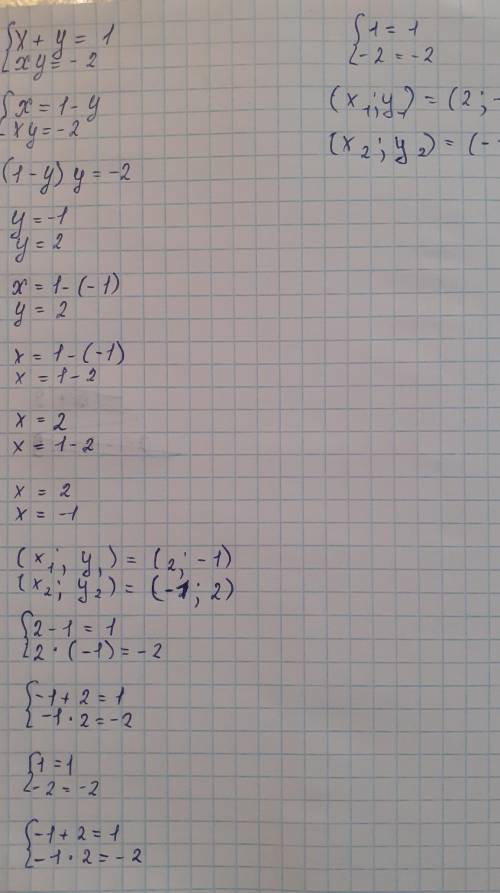 {x + y = 1
{xy = -2
{x = 1 - y
{xy = -2
(1 - y) y = -2
y = -1
y = 2
x = 1 - (-1)
y = 2
x = 1 - (-1)
x = 1 - 2
x = 2
x = 1 - 2
x = 2
x = -1
(x₁; y₁) = (2; -1)
(x₂; y₂) = (-1; 2)
{2 - 1 = 1
{2 · (-1) = -2
{-1 + 2 = 1
{-1 · 2 = -2
{1 = 1
{-2 = -2
{-1 + 2 = 1
{-1 · 2 = -2
{1 = 1
{-2 = -2
(x₁; y₁) = (2; -
(x₂; y₂) = (-